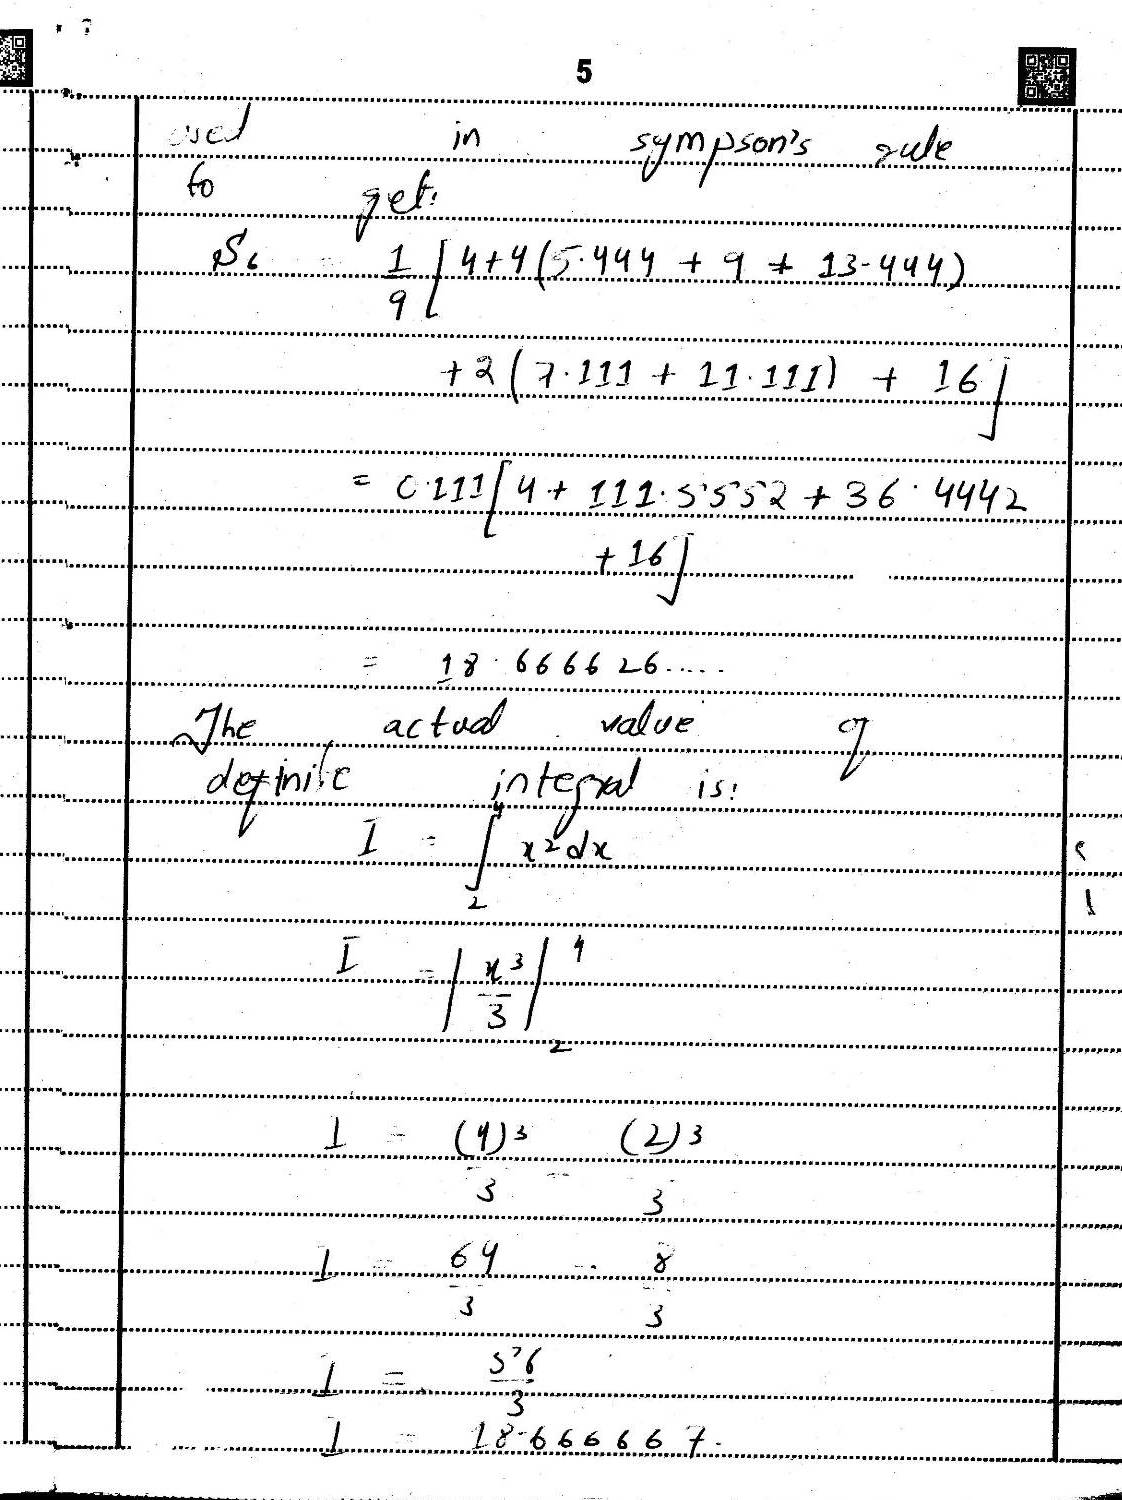 5
used in sympson's rule
to get:
S₆ = 1/9 [4+4(5.444 + 9 + 13.444)
+2(7.111 + 11.111) + 16]
= 0.111[4+ 111.5552 + 36.4442
+16]
= 18.666626.....
The actual value of
definite integral is:
I = ∫₂⁴ x²dx
I = |x³/3|₂⁴
I = (4)³/3 - (2)³/3
I = 64/3 - 8/3
I = 56/3
I = 18.666667.